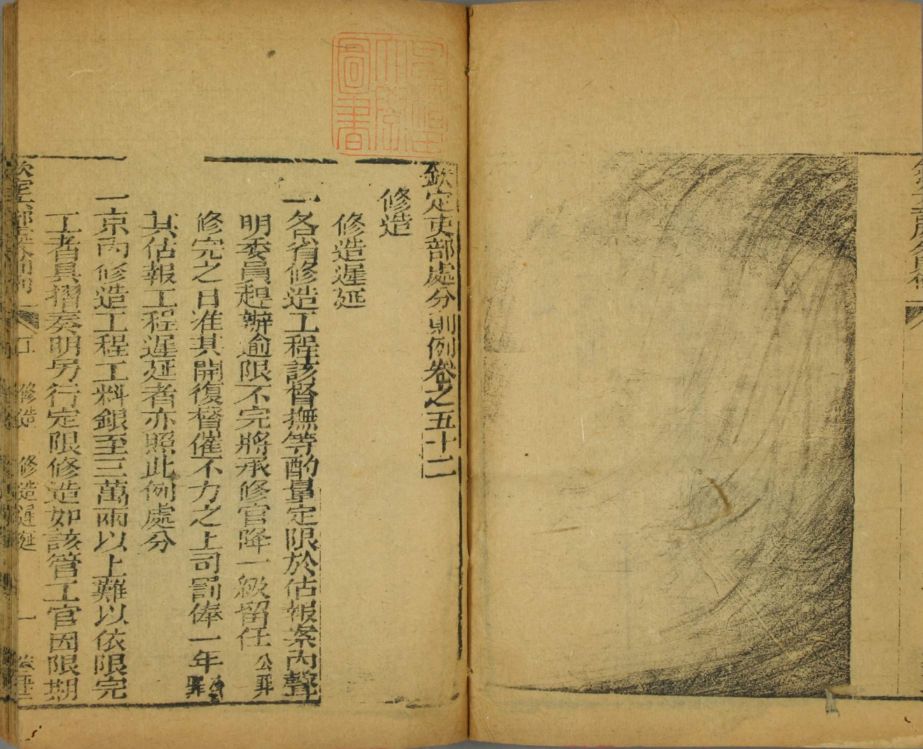 欽定吏部處分則例卷之五十二
修造
修造遲延
一各省修造工程該督撫等酌量定限於估報案內聲
明委員趕辦逾限不完將承修官降一級留任公罪
修完之日准其開復督催不力之上司罰俸一年公罪
其估報工程遲延者亦照此例處分
一京內修造工程工料銀至三萬兩以上難以依限完
工者具摺奏明另行定限修造如該管工官因限期
修造 修造遲延 一